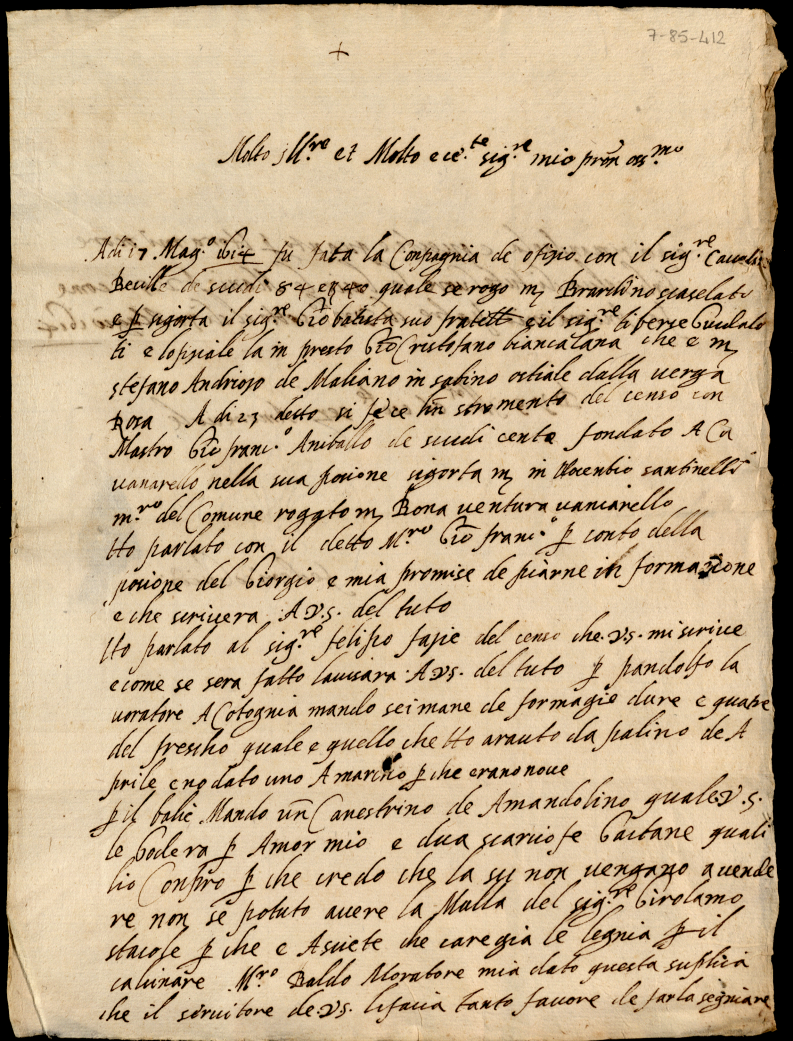 7-85-412
+
Molto Ill.re et Molto ece.te sig.re mio pron oss.mo
Adi 17 Mag.o 1614 fu fata la Conpagnia de ofizio con il sig.re Cavali
Beville de scudi 84 e 40 quale se rogo m Brardino
e p sigorta il sig.re Gio batista suo fratell e il sig.re liberse Guidalo
ti e lofitiale la in presto Gio Cristofano biancalana che e m
stefano Andriozo de Maliano in sabino ostiale dalla verga
Rosa A di 23 detto si fece lin stromento del censo con
Mastro Gio franc.o Aniballo de scudi cento fondato A Ca
vanarello nella sua posione sigorta m in Nocentio santinelli
m.ro del Comune roggto m Bona ventura vanciarello
Ho parlato con il detto M.ro Gio franc.o p conto della
posione del Giorgio e mia promise de piarne in formazione
e che scrivera A V.S. del tuto
Ho parlato al sig.re felipo fazie del censo che V.S. mi scrive
e come se sera fatto lavisara A V.S. del tuto p pandolfo la
voratore A Cotognia mando sei mane de formagie dure e quatre
del frescho quale e quello che Ho avauto da palino de A
prile e no dato uno A marcino p che erano nove
p il balie Mando un Canestrino de Amandolino quale V.S.
le Godera p Amor mio e dua scarciofe Gaitane quali
lio Conpro p che credo che la su non vengano a vende
re non se potuto avere la Mulla del sig.re Girolamo
stacole p che e Asciete che caregia le legnia p il
calcinare M.ro Baldo Moratore mia dato questa suplica
che il servitore de V.S. li facia tanto favore de farla segniare